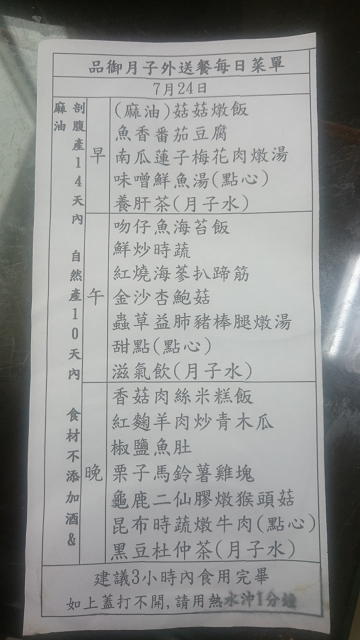 品御月子外送餐每日菜單
7月24日
剖腹產14天內 自然產10天內 食材不添加酒&
麻油
早
(麻油)菇菇燉飯
魚香番茄豆腐
南瓜蓮子梅花肉燉湯
味噌鮮魚湯(點心)
養肝茶(月子水)
午
吻仔魚海苔飯
鮮炒時蔬
紅燒海蔘扒蹄筋
金沙杏鮑菇
蟲草益肺豬棒腿燉湯
甜點(點心)
滋氣飲(月子水)
晚
香菇肉絲米糕飯
紅麴羊肉炒青木瓜
椒鹽魚肚
栗子馬鈴薯雞塊
龜鹿二仙膠燉猴頭菇
昆布時蔬燉牛肉(點心)
黑豆杜仲茶(月子水)
建議3小時內食用完畢
如上蓋打不開,請用熱水沖1分鐘